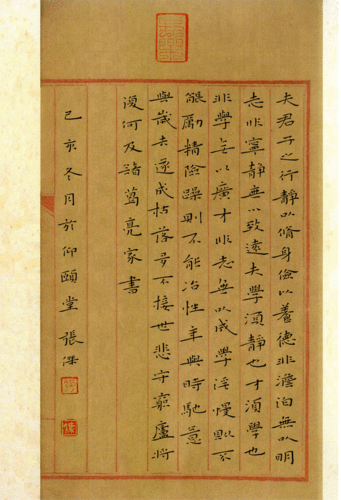 夫君子之行靜以脩身儉以養德非澹泊無以明
志非寧靜無以致遠夫學須靜也才須學也
非學無以廣才非志無以成學淫慢則不
能勵精險躁則不能冶性年與時馳意
與歲去遂成枯落多不接世悲守窮廬將
復何及諸葛亮家書
己亥冬月於仰頤堂 張